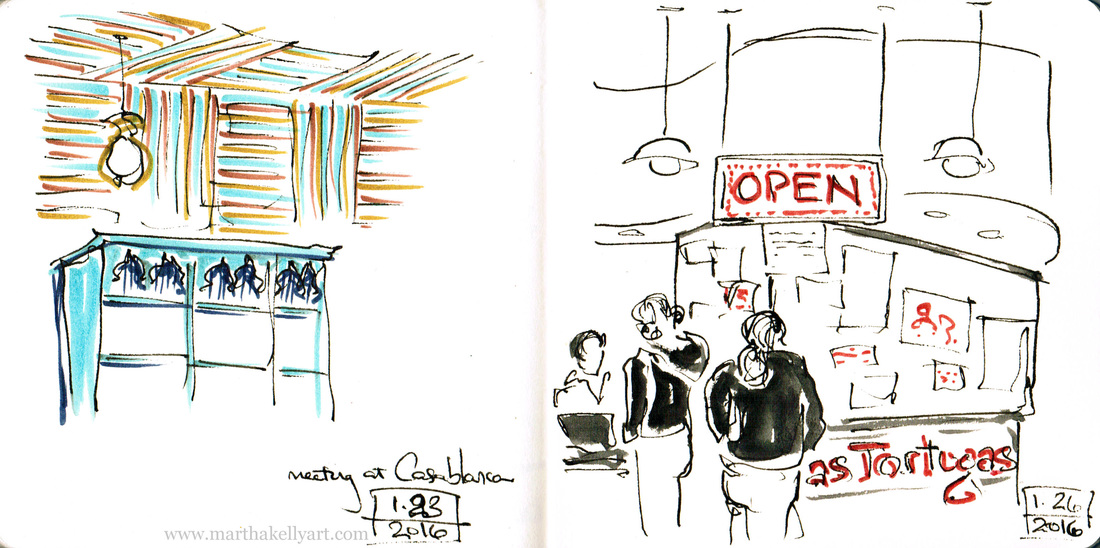 meeting at Casablanca
1.23
2016
www.marthakellyart.com
OPEN
as Tortugas
1.26
2016